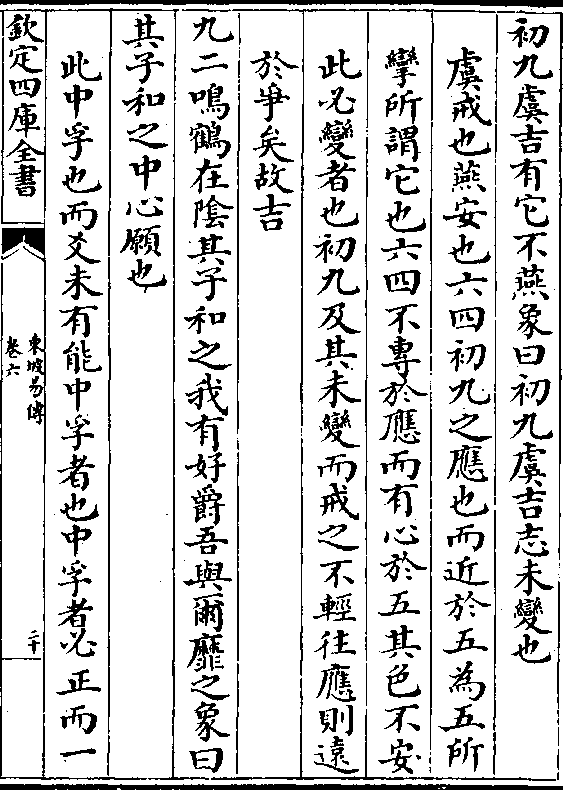 初九虞吉有它不燕象曰初九虞吉志未變也
虞戒也燕安也六四初九之應也而近於五為五所
攣所謂它也六四不專於應而有心於五其色不安
此必變者也初九及其未變而戒之不輕往應則遠
於爭矣故吉
九二鳴鶴在陰其子和之我有好爵吾與爾靡之象曰
其子和之中心願也
此中孚也而爻未有能中孚者也中孚者必正而一
欽定四庫全書
東坡易傳
卷六
二十